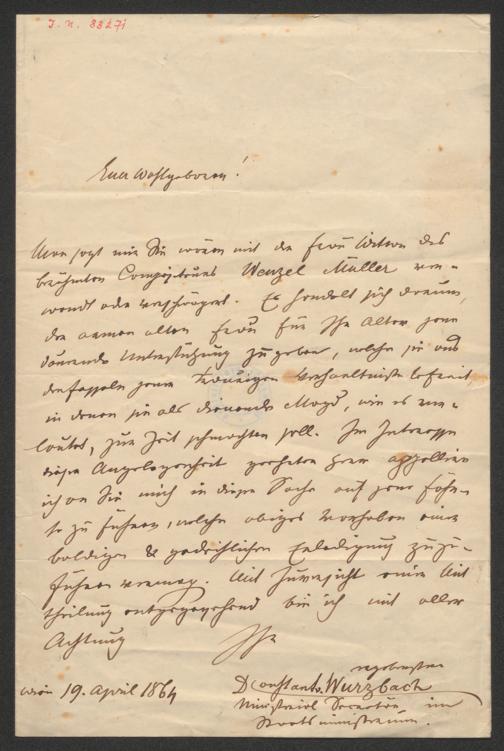 I. N. 33271
Euer Wohlgeboren!
Man sagt mir Sie wären mit der Frau Witwe des
berühmten Compositeurs Wenzel Müller ver-
wandt oder verschwägert. Es handelt sich darum,
der armen alten Frau für Ihr Alter jene
dauernde Unterstützung zu geben, welche sie aus
den Fesseln jener traurigen Verhaeltnisse befreit,
in denen sie als dienende Magd, wie es ver-
lautet, zur Zeit schmachten soll. Im Interesse
dieser Angelegenheit
ich an Sie mich in dieser Sache auf jene Föhr-
te zu führen, welche obiges Vorhaben einer
baldigen & gedeihlichen Erledigung zuzu-
führen vermag. Mit Zuversicht einer Mit-
theilung entgegensehend bin ich mit aller
Achtung
Ihr
ergebenster
Dr Constant v. Wurzbach
Wien 19. April 1864
Ministerial Secretär im
Staatsministerium.